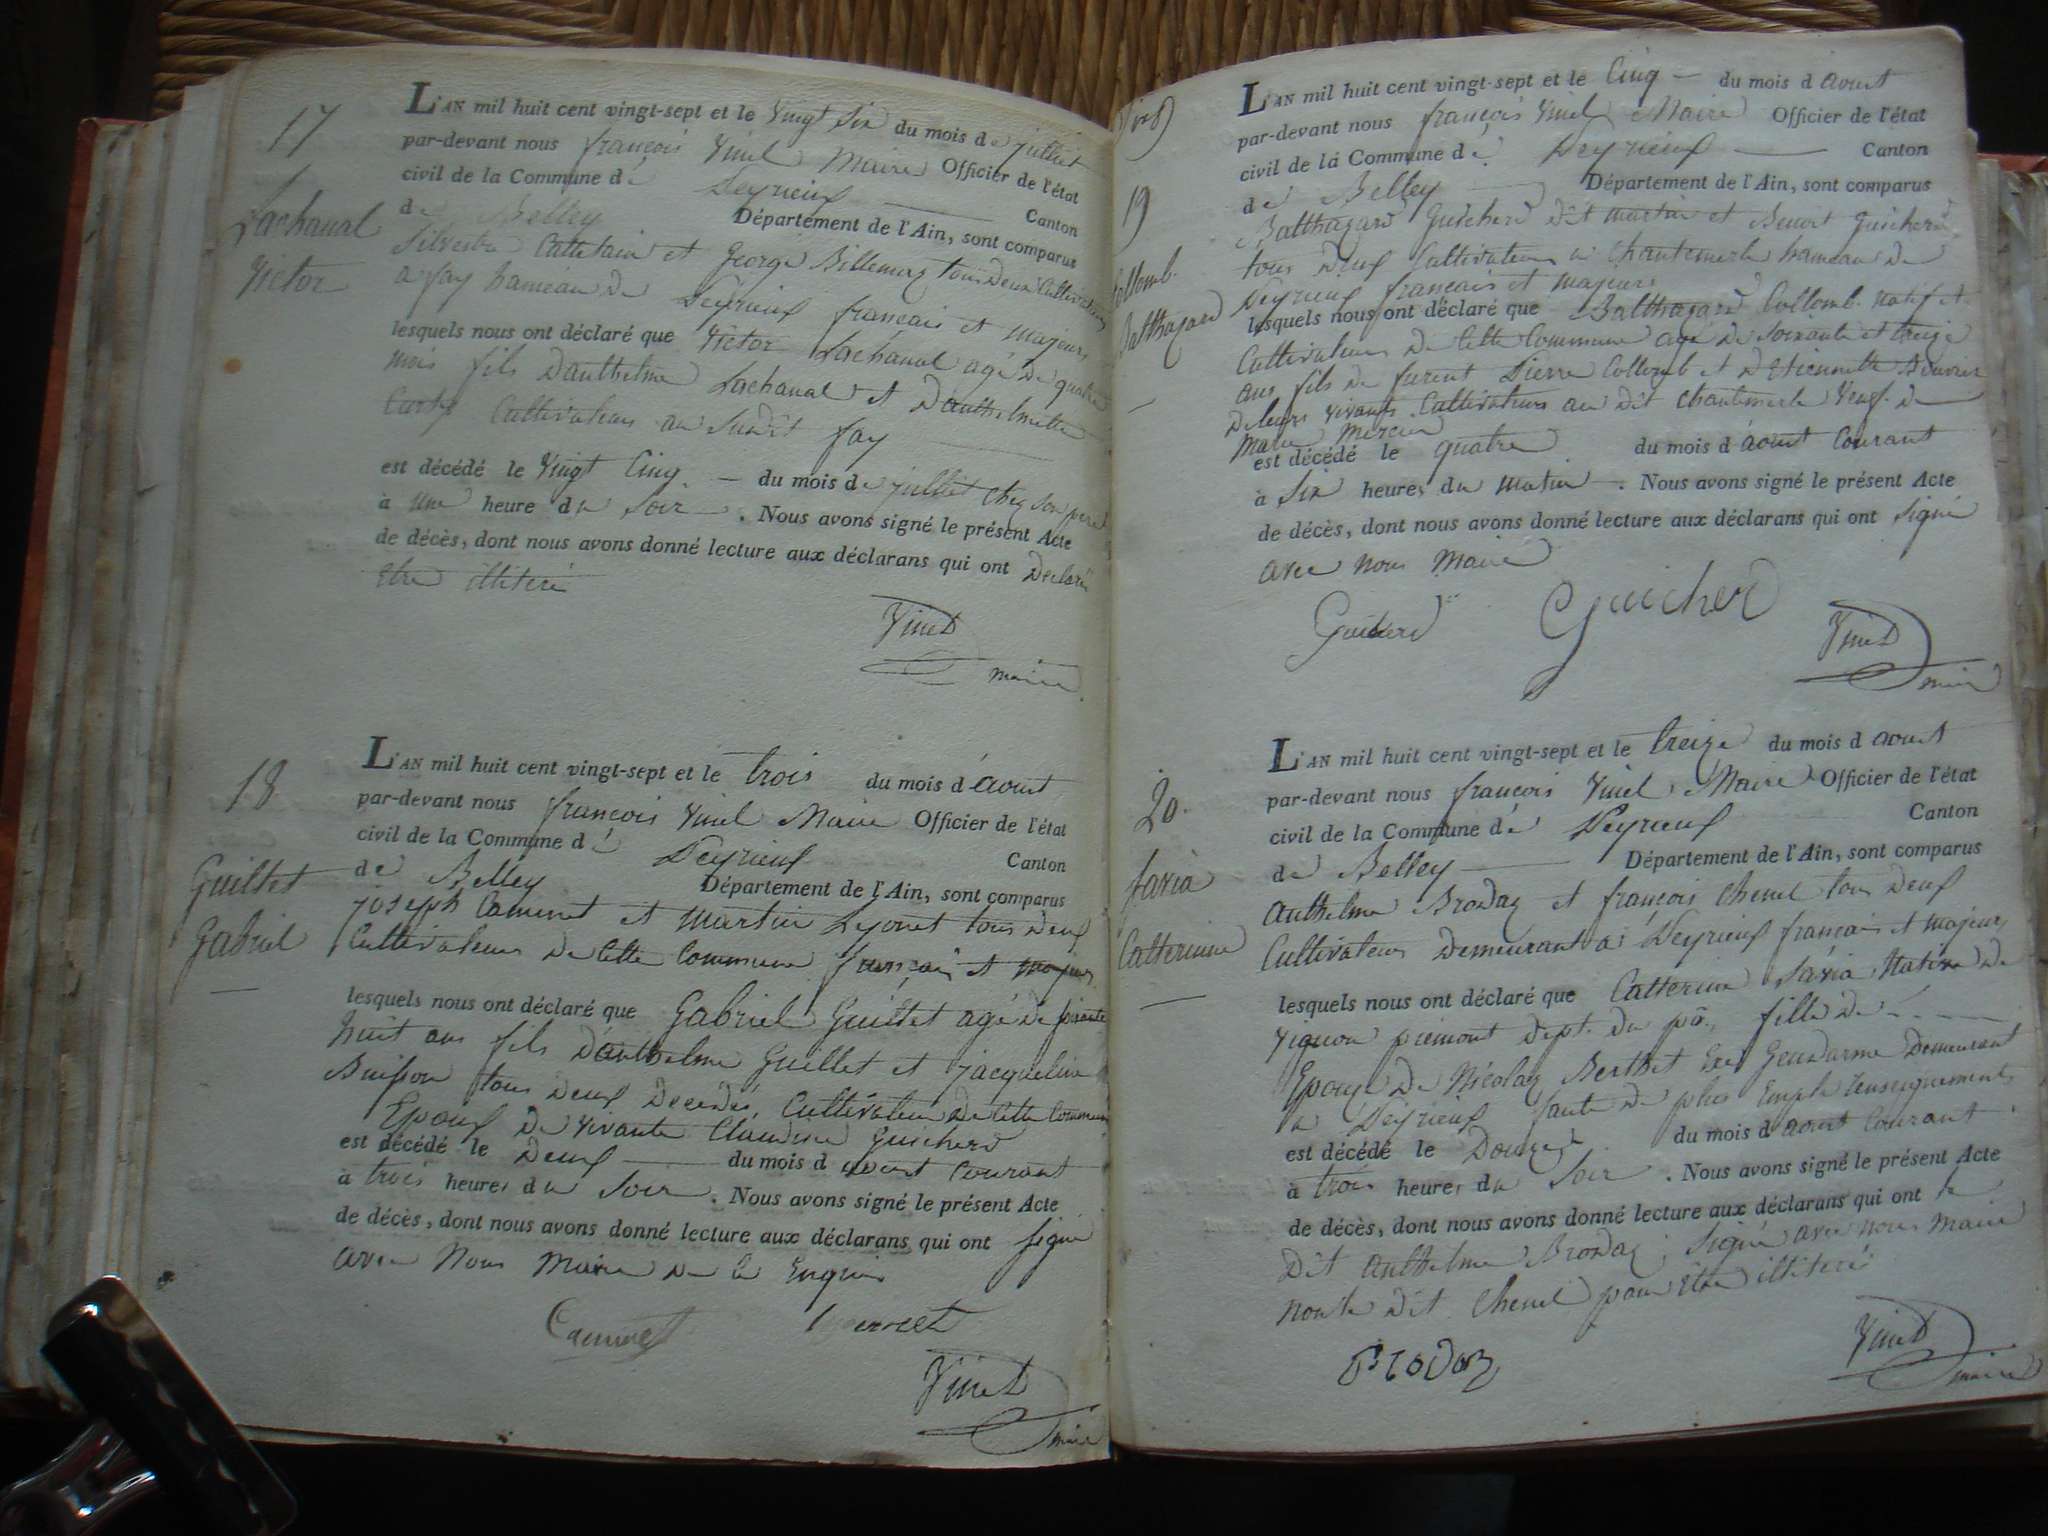 17
Lachanal
Victor
L'AN mil huit cent vingt-sept et le Vingt Six du mois de juillet
par-devant nous françois Vinel Maire Officier de l'état
civil de la Commune dé Peyrieux Canton
de Belley Département de l'Ain, sont comparus
Silvestre et George Billemaz tous Deux Cultivateurs
a fay hameau de Peyrieux francais et majeurs
lesquels nous ont déclaré que Victor Lachanal agé De quatre
mois fils Danthelme Lachanal et Danthelmette
Cultivateurs au Sudit fay
est décédé le Vingt Cinq du mois de juillet chez son père
à une heure du Soir. Nous avons signé le présent Acte
de décès, dont nous avons donné lecture aux déclarans qui ont Declaré
Etre illiteré
Vinel
maire
18
Guillet
Gabriel
L'AN mil huit cent vingt-sept et le trois du mois d'aout
par-devant nous françois Vinel Maire Officier de l'état
civil de la Commune dé Peyrieux Canton
de Belley Département de l'Ain, sont comparus
joseph Caminet et martin tous Deux
Cultivateurs De Cette Commune français et majeurs
lesquels nous ont déclaré que Gabriel Guillet agé De
huit ans fils Danthelme Guillet et jacqueline
Buisson tous Deux Decedés, Cultivateur De Cette Commune
Epoux De vivante Claudine Guicherd
est décédé le Deux du mois d aout Courant
à trois heures du Soir. Nous avons signé le présent Acte
de décès, dont nous avons donné lecture aux déclarans qui ont signé
avec Nous Maire De ce Enquis
Caminet
Vinel
maire
19
Collomb
Balthazard
L'AN mil huit cent vingt-sept et le Cinq du mois d aout
par-devant nous françois Vinel Maire Officier de l'état
civil de la Commune dé Peyrieux Canton
de Belley Département de l'Ain, sont comparus
Balthazard Guicherd dit martin et Benoit Guicherd
tous Deux Cultivateurs a Chantemerle hameau De
Peyrieux francais et majeurs
lesquels nous ont déclaré que Balthazard Collomb natif et
Cultivateur De Cette Commune agé De Soixante et treize
ans fils De furent Pierre Collomb et D Etiennette
De leurs vivants Cultivateurs au Dit Chantemerle Veuf De
Marie Mercier
est décédé le quatre du mois d'aout Courant
à Six heures du matin. Nous avons signé le présent Acte
de décès, dont nous avons donné lecture aux déclarans qui ont signé
avec nous Maire
Guicherd Guicherd
Vinel
maire
20.
Savia
Catterinne
L'AN mil huit cent vingt-sept et le treize du mois d aout
par-devant nous françois Vinel Maire Officier de l'état
civil de la Commune dé Peyrieux Canton
de Belley Département de l'Ain, sont comparus
Anthelme Brodaz et françois Chenel tous Deux
Cultivateurs Demeurant a Peyrieux francais et majeurs
lesquels nous ont déclaré que Catterine Savia Native De
Vignon piemont Dept. Du pô, fille De
Epouse De Nicolaz Berthet Ex Gendarme Demeurant
a Peyrieux faute De plus Ample renseignements
est décédé le Douze du mois d aout Courant
à trois heures du Soir. Nous avons signé le présent Acte
de décès, dont nous avons donné lecture aux déclarans qui ont le
Dit Anthelme Brodaz signé avec nous Maire
non le Dit Chenel pour Etre illiteré
Brodaz
Vinel
maire